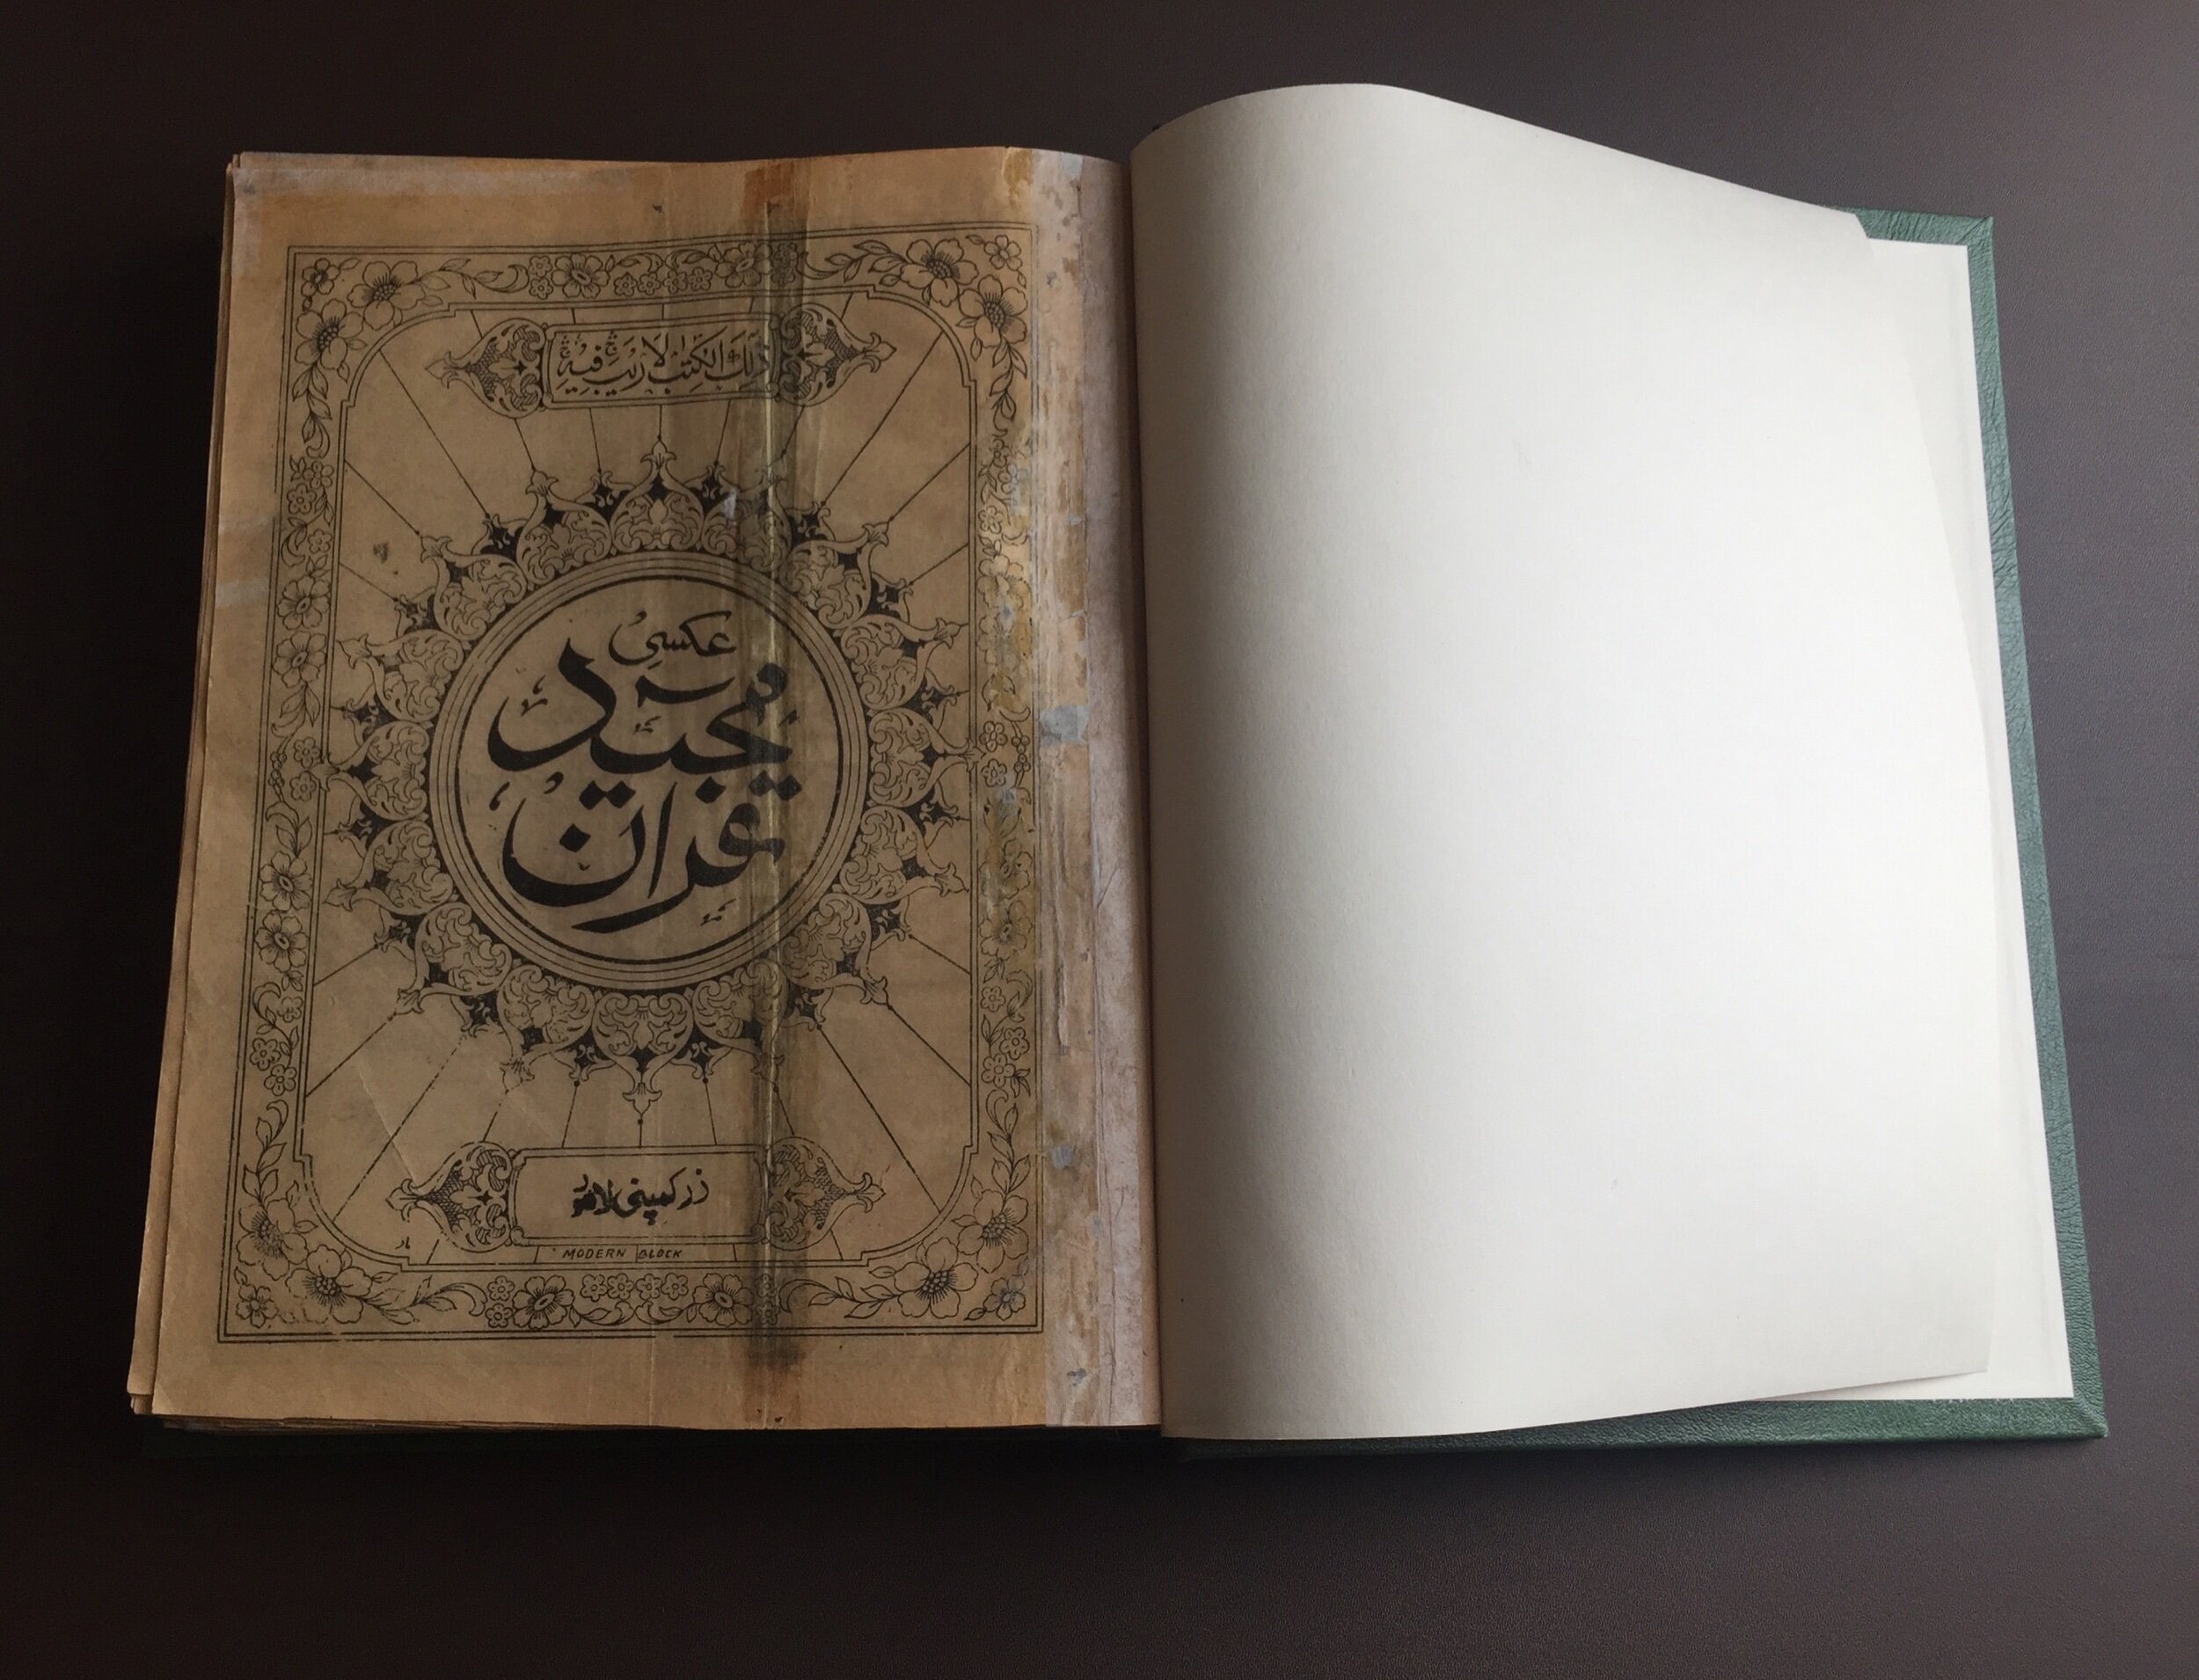 ذٰلِكَ الْكِتٰبُ لَا رَيْبَ فِيْهِ
عکسی
مجید
قرآن
زر کمپنی لاہور
MODERN BLOCK